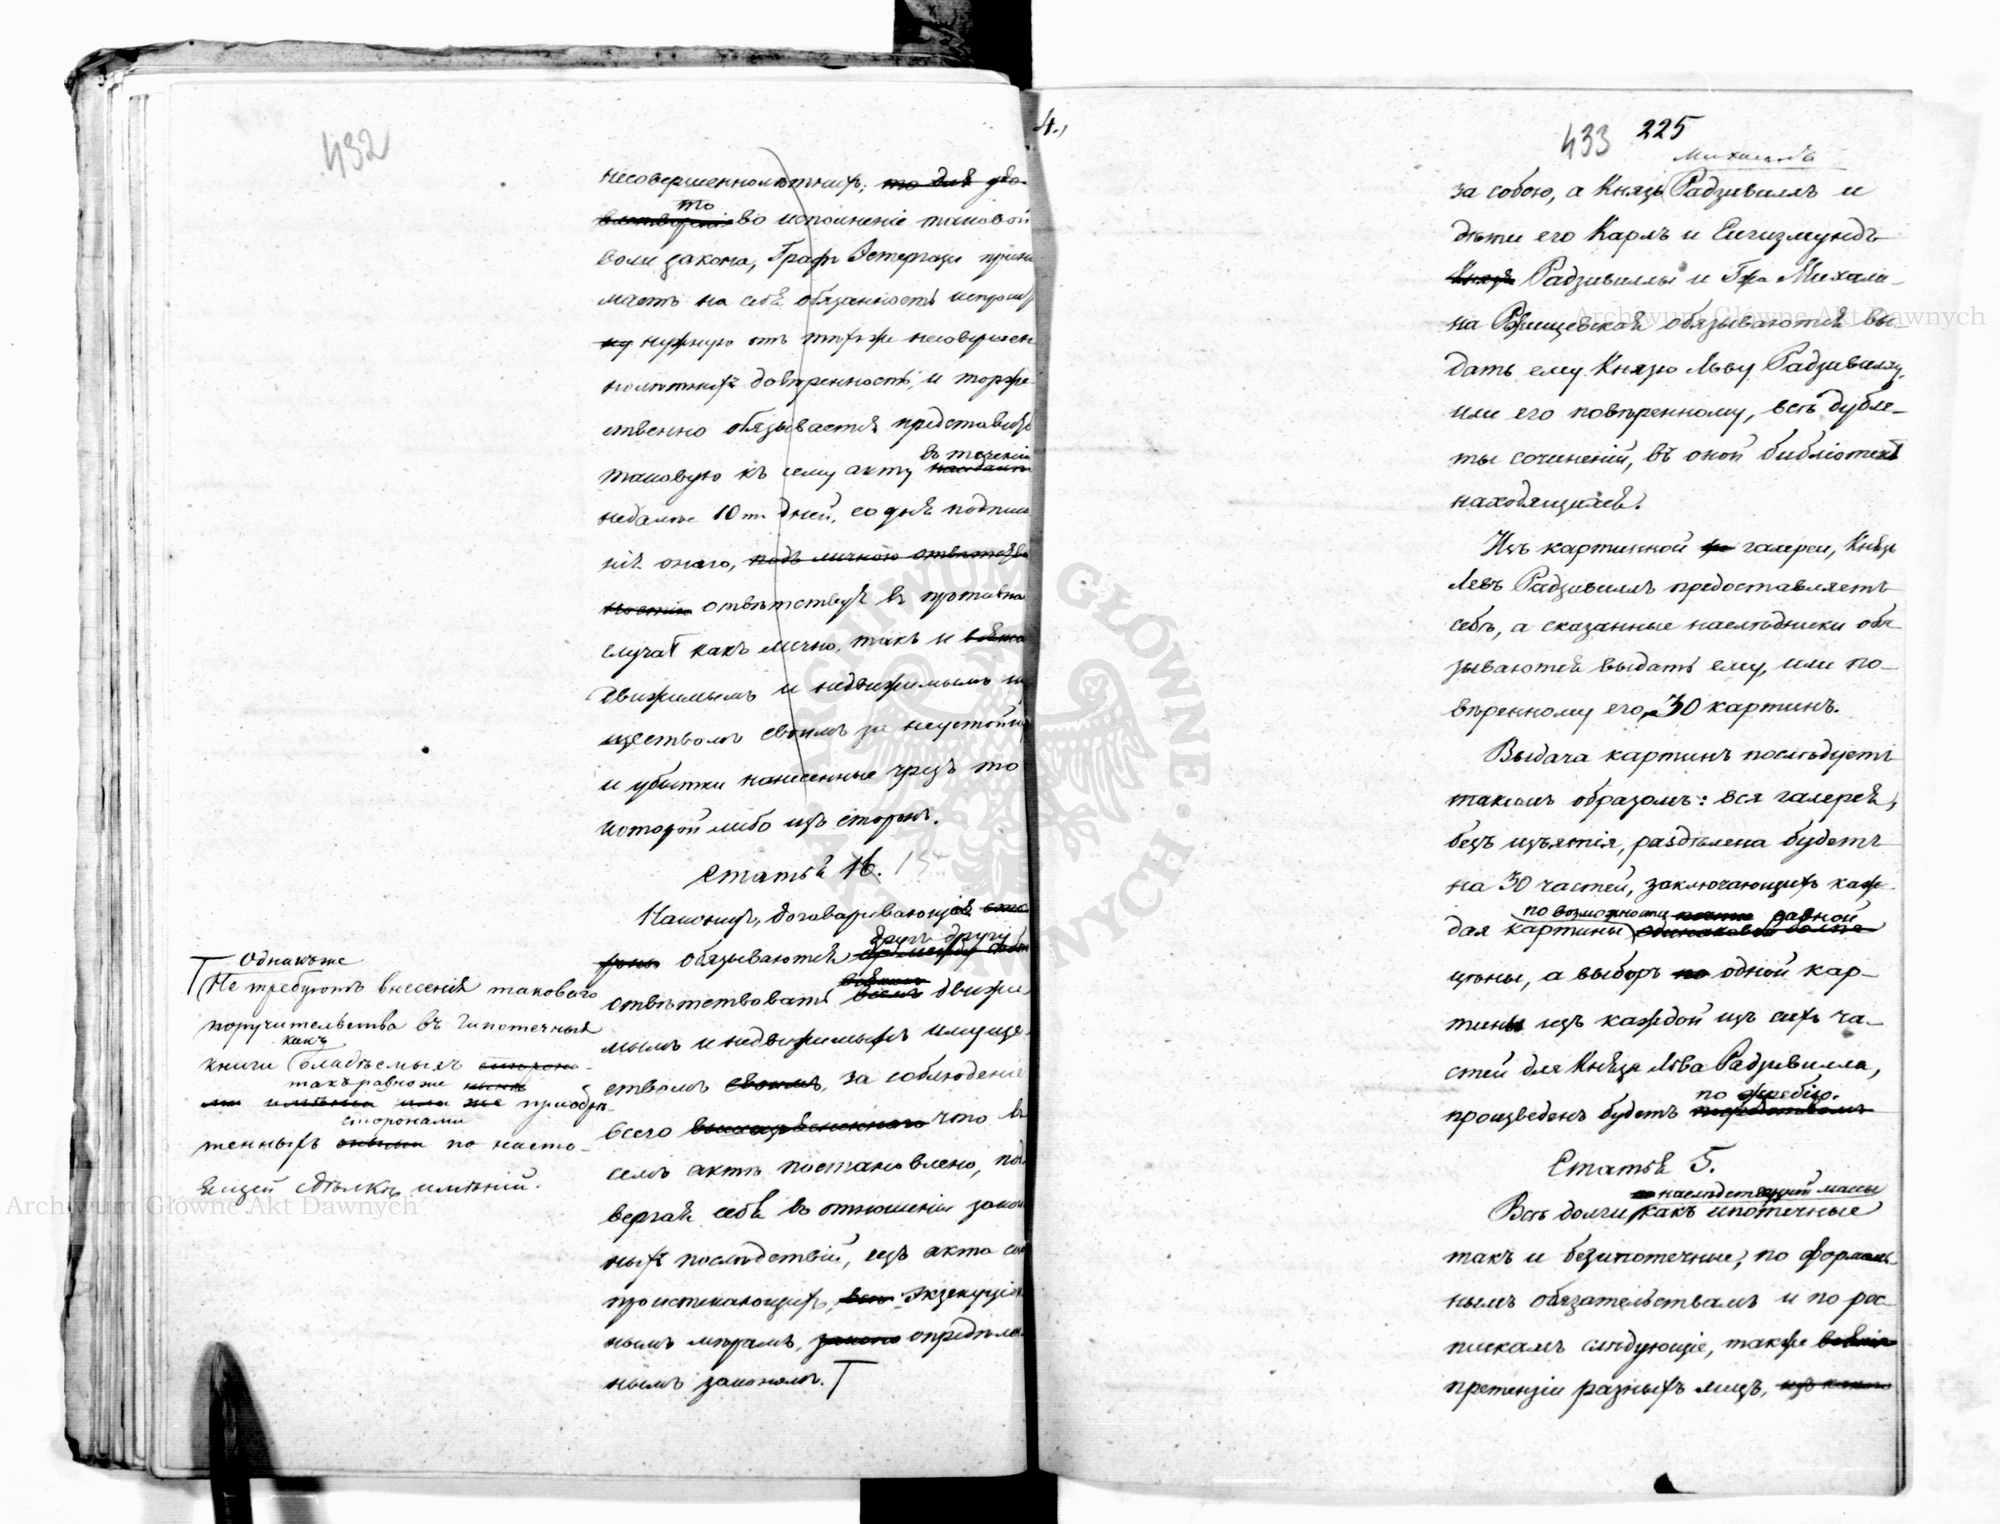 432
несовершеннолѣтнихъ, то для удо-
влетворенія то во исполненіе таковой
воли закона, Графъ Эстергази прини
маетъ на себя обязанность испроси
ну нужную отъ тѣхъ же несовершен
нолѣтнихъ довѣренность, и торже
ственно обязывается представить
таковую къ сему акту въ теченіи
недалѣе 10ти дней, со дня подписа
нія онаго, подъ личною отвѣтств
отвѣтствуя въ противно
случаѣ какъ лично, такъ и
движимымъ и недвижимымъ и
ществомъ своимъ за неустойк
и убытки нанесенные чрезъ то
которой либо изъ сторонъ.
Статья 16. 15
Наконецъ, договаривающіяся сто
роны обязываются другъ другу
отвѣтствовать всѣмъ движи
мымъ и недвижимымъ имуще
ствомъ своимъ, за соблюденіе
всего вышеизъясненнаго что въ
семъ актѣ постановлено, под
вергая себя въ отношеніи закон
ныхъ послѣдствій, изъ акта се
проистекающихъ, Экзекуціон
нымъ мѣрамъ, закона опредѣлен
нымъ закономъ. Т
Т Однакоже
Не требуютъ внесенія таковаго
поручительства въ Гипотечныя
книги какъ владѣемыхъ сторона-
ми такъ равно и имѣнія или же пріобрѣ-
тенныхъ сторонами по насто-
ящей сдѣлкѣ имѣній.
4.,
433 225
за собою, а Князь Михаилъ Радзивиллъ и
дѣти его Карлъ и Сигизмундъ
Князь Радзивиллы и Гра Михали-
на Ржищевская обязываются вы-
дать ему Князю Льву Радзивиллу,
или его повѣренному, всѣ дубле-
ты сочиненій, въ оной библіотекѣ
находящіяся.
Изъ картинной галереи, Князь
Левъ Радзивиллъ предоставляетъ
себѣ, а сказанные наслѣдники обя
зываются выдать ему, или по-
вѣренному его, 30 картинъ.
Выдача картинъ послѣдуетъ
такимъ образомъ: вся галерея,
безъ изъятія, раздѣлена будетъ
на 30 частей, заключающихъ каж-
дая картины по возможности почти равной
цѣны, а выборъ по одной кар-
тинѣ изъ каждой изъ сихъ ча-
стей для Князя Льва Радзивилла,
произведенъ будетъ по жребію.
Статья 5.
Всѣ долги наслѣдственной массы какъ ипотечные
такъ и безипотечные, по формаль-
нымъ обязательствамъ и по рос-
пискамъ слѣдующіе, также всякія
претензіи разныхъ лицъ, изъ какого